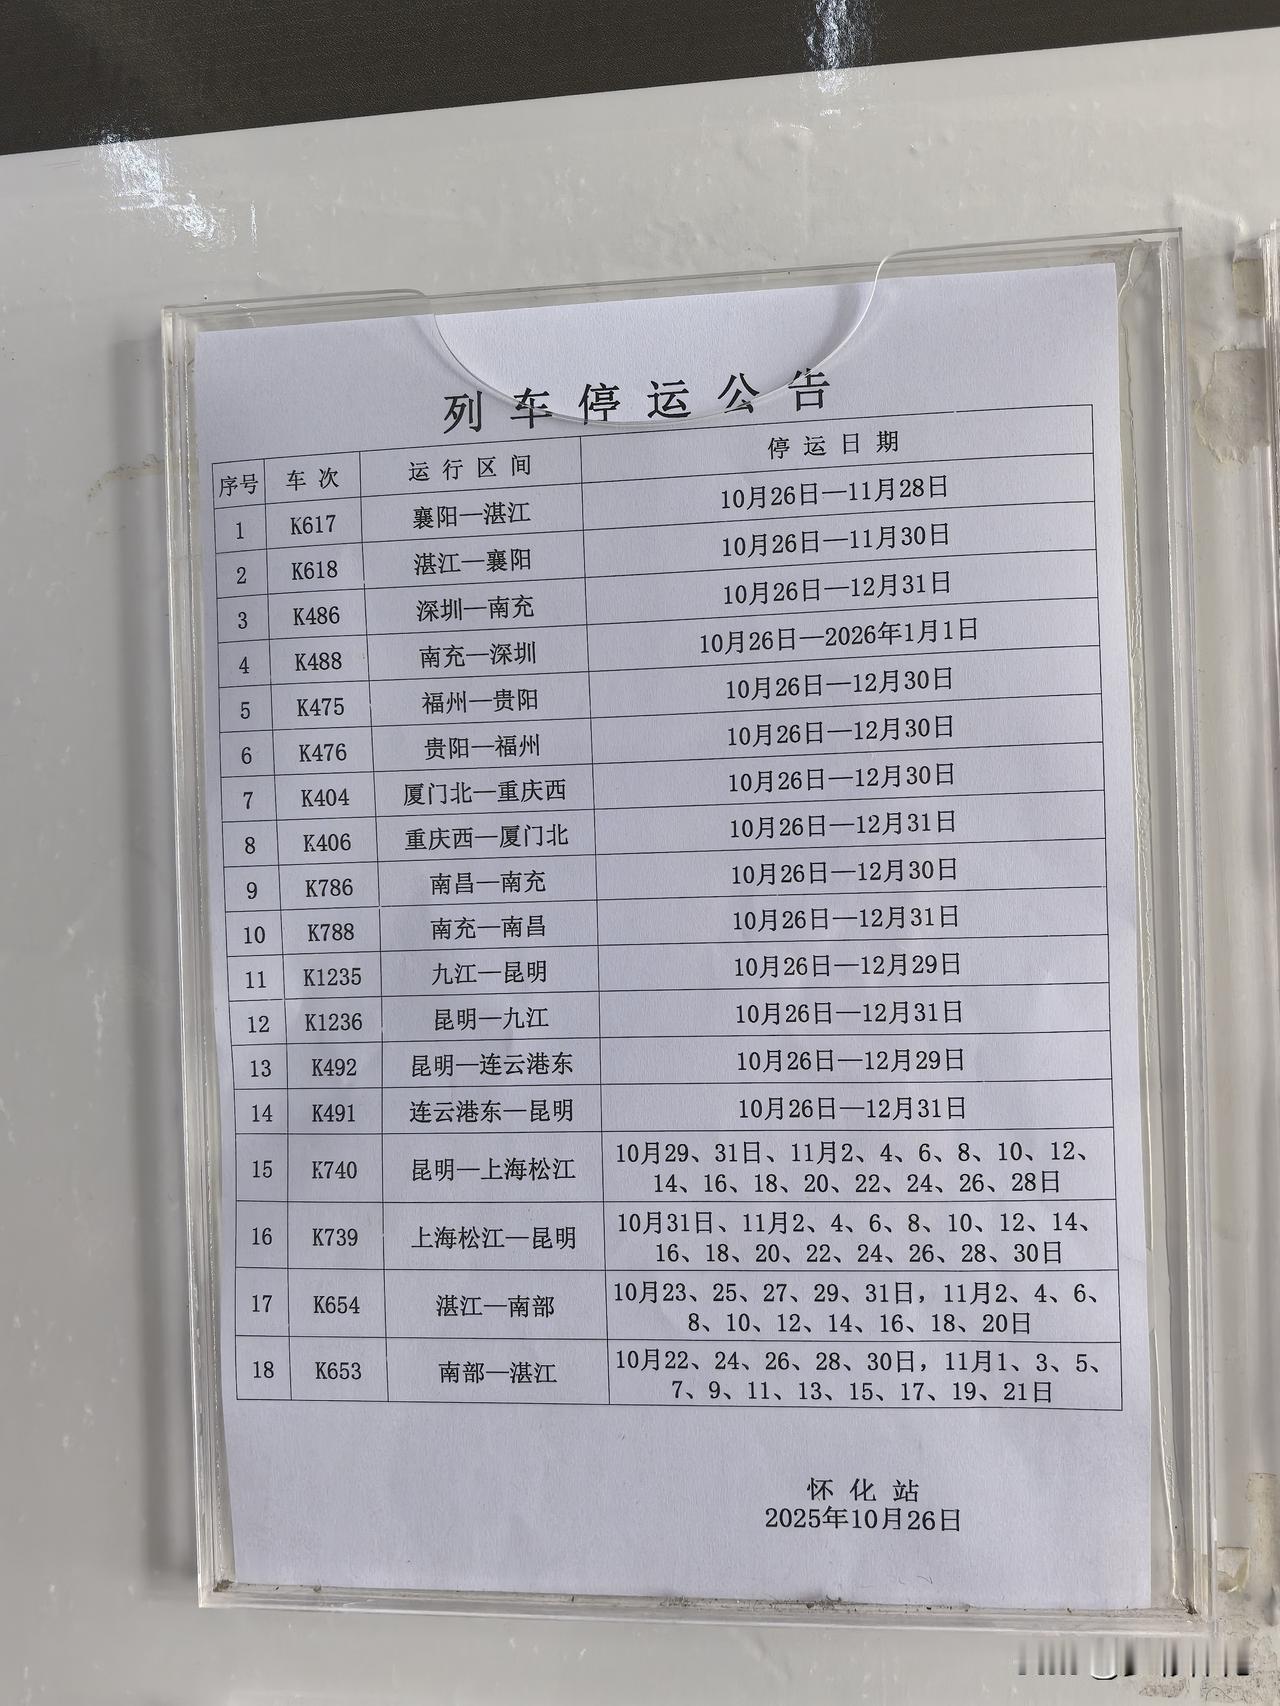 列车停运公告
序号 车次 运行区间 停运日期
1 K617 襄阳—湛江 10月26日—11月28日
2 K618 湛江—襄阳 10月26日—11月30日
3 K486 深圳—南充 10月26日—12月31日
4 K488 南充—深圳 10月26日—2026年1月1日
5 K475 福州—贵阳 10月26日—12月30日
6 K476 贵阳—福州 10月26日—12月30日
7 K404 厦门北—重庆西 10月26日—12月30日
8 K406 重庆西—厦门北 10月26日—12月31日
9 K786 南昌—南充 10月26日—12月30日
10 K788 南充—南昌 10月26日—12月31日
11 K1235 九江—昆明 10月26日—12月29日
12 K1236 昆明—九江 10月26日—12月31日
13 K492 昆明—连云港东 10月26日—12月29日
14 K491 连云港东—昆明 10月26日—12月31日
15 K740 昆明—上海松江 10月29、31日、11月2、4、6、8、10、12、
14、16、18、20、22、24、26、28日
16 K739 上海松江—昆明 10月31日、11月2、4、6、8、10、12、14、
16、18、20、22、24、26、28、30日
17 K654 湛江—南部 10月23、25、27、29、31日，11月2、4、6、
8、10、12、14、16、18、20日
18 K653 南部—湛江 10月22、24、26、28、30日，11月1、3、5、
7、9、11、13、15、17、19、21日
怀化站
2025年10月26日